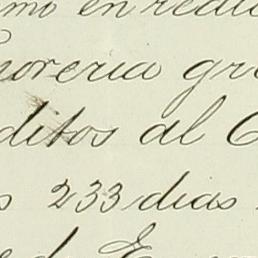 mo en redu
soreria gr
ditos al C
s 233 dias